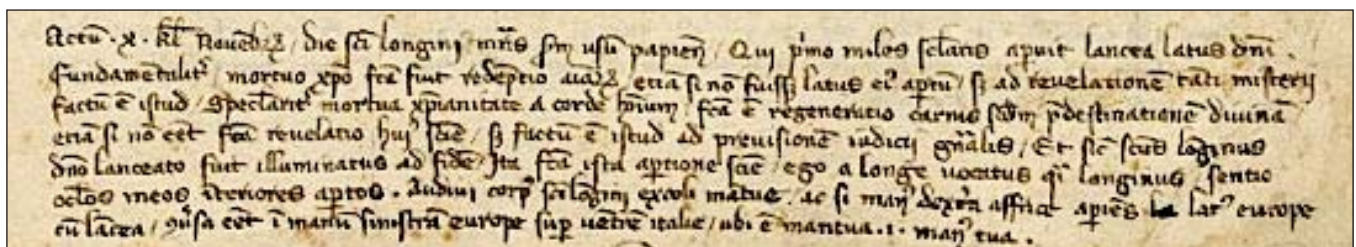 Actū · x · kl̄ Novēbꝝ / die sc̄i longini / mr̄is scd̄m usū papien̄ / Qui p̄mo miles sc̄laris apuit lancea latus dn̄i .
fundamētalit᷑ / mortuo xp̄o fc̄a fuit redēptio aīaꝝ / etiā si nō fuissꝫ latus eiꝰ aptū / sꝫ ad revelationē tāti misterii
factū ē istud / Spec̄larit᷑ mortua xp̄ianitate a corde hōium / fc̄a ē regeneratio carnis scd̄m p̄destinationē divinā
etiā si nō eēt fc̄a revelatio huiꝰ scīe / sꝫ factū ē istud ad previsionē iudicii gn̄alis / Et sic̄ sc̄us lōginus
dn̄o lanceato fuit illuminatus ad fidē / Ita fc̄a ista aptione scīe / ego a longe vocatus q̄i longinus / sentio
oc̄los meos īteriores aptos . Audivi corpꝰ sc̄i lōgini excoli mātue . ac si manꝰ dextra affrice apiēs latꝰ europe
cū lācea / ꝯv̄sa eēt ī manū sinistrā europe sup ventrē italie / ubi ē mantua . i . manꝰ tua .